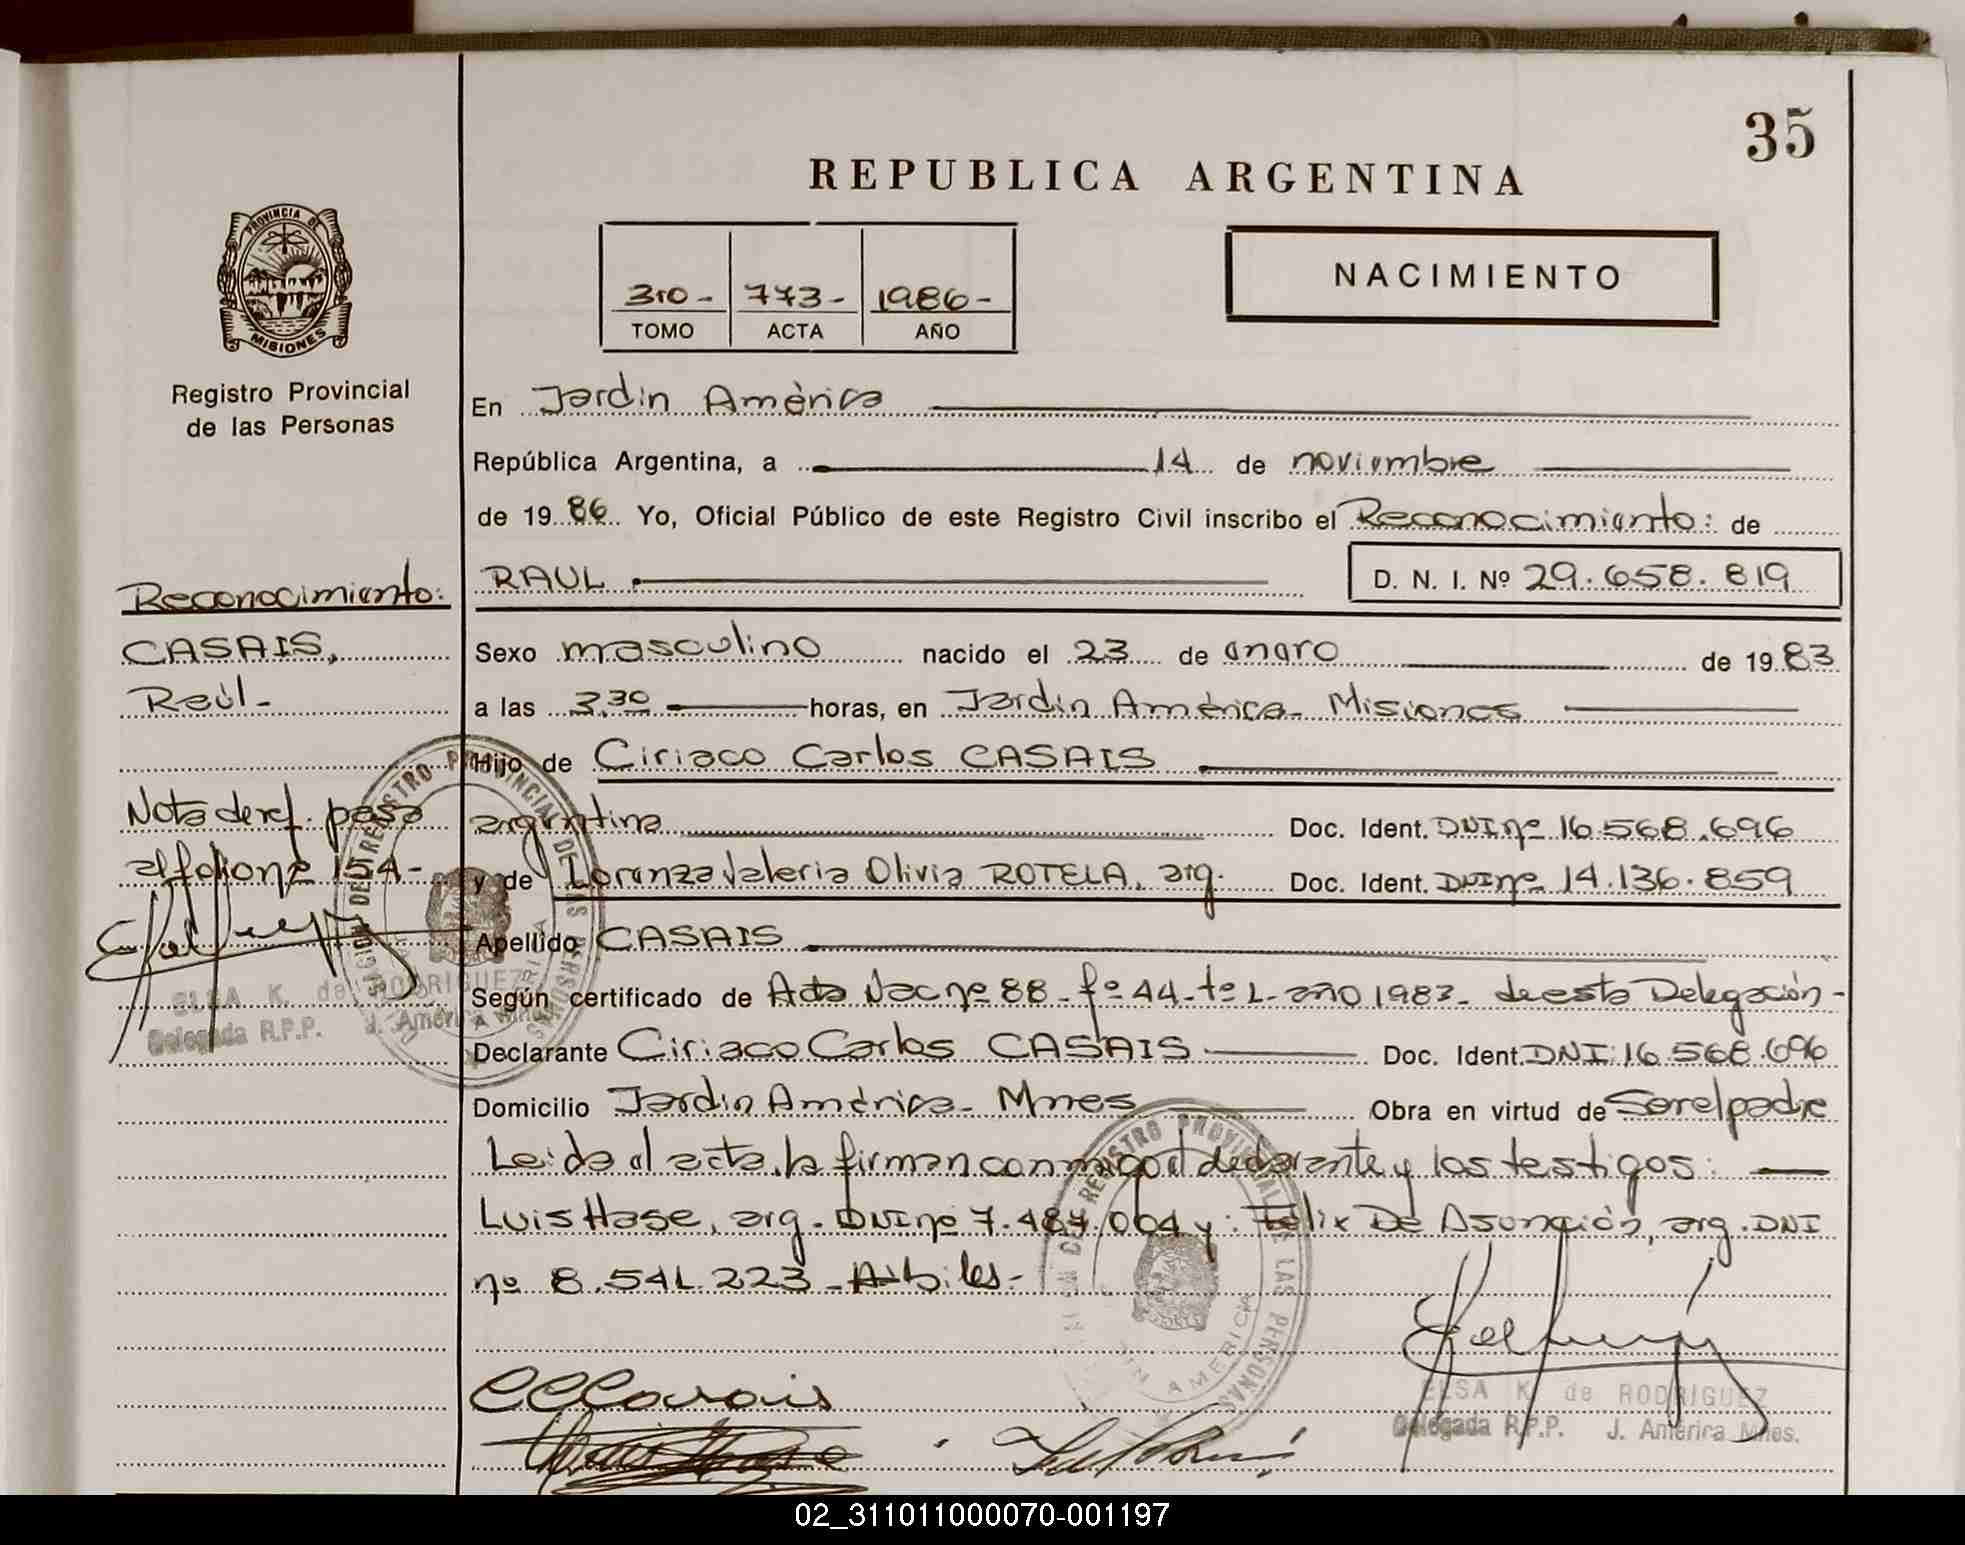 35
REPUBLICA ARGENTINA
PROVINCIA DE
MISIONES
Registro Provincial
de las Personas
3ro - 773 - 1986 -
TOMO ACTA AÑO
NACIMIENTO
En Jardín América
República Argentina, a 14 de noviembre
de 1986 Yo, Oficial Público de este Registro Civil inscribo el Reconocimiento: de
RAUL D. N. I. Nº 29.658.819
Reconocimiento:
CASAIS,
Raúl-
Nota de ref. pasa
al folio nº 154-
ELSA K. de RODRIGUEZ
Delegada R.P.P. J. América Mnes.
Sexo masculino nacido el 23 de enero de 1983
a las 3,30 horas, en Jardín América- Misiones
Hijo de Ciriaco Carlos CASAIS
argentina Doc. Ident. DNI nº 16.568.696
y de Lorenza Valeria Olivia ROTELA, arg. Doc. Ident. DNI nº 14.136.859
Apellido CASAIS
Según certificado de Acta Nac nº 88- fº 44- tº 1- año 1983- de esta Delegación-
Declarante Ciriaco Carlos CASAIS Doc. Ident. DNI: 16.568.696
Domicilio Jardín América- Mnes Obra en virtud de Ser el padre
Leida el acta, la firman conmigo el declarante y los testigos:
Luis Hase, arg. DNI nº 7.487.004 y: Félix De Asunción, arg. DNI
nº 8.541.223- Aibiles-
CCCasais
ELSA K. de RODRIGUEZ
Delegada R.P.P. J. América Mnes.
02_311011000070-001197